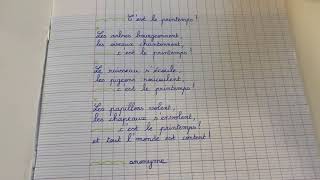 C'est le printemps !
Les arbres bourgeonnent,
les oiseaux chantonnent,
c'est le printemps !
Le ruisseau s'écoule,
les pigeons roucoulent,
c'est le printemps !
Les papillons volent,
les chapeaux s'envolent,
c'est le printemps !
et tout l'monde est content !
anonyme